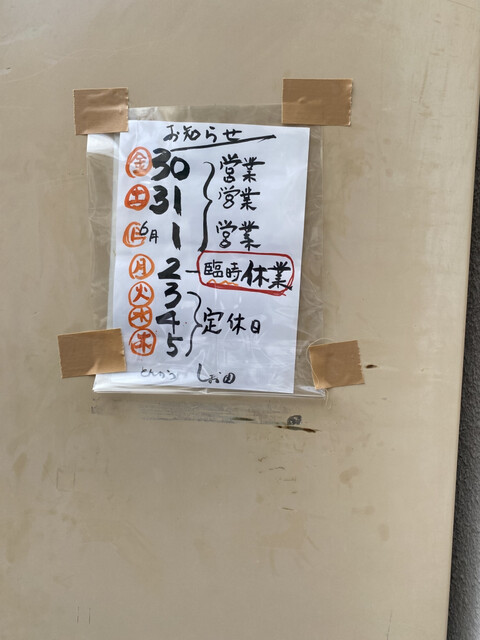 お知らせ
金 30 営業
土 31 営業
日 6月 1 営業
月 2 臨時休業
火 3
水 4 定休日
木 5
とんかつ しお田